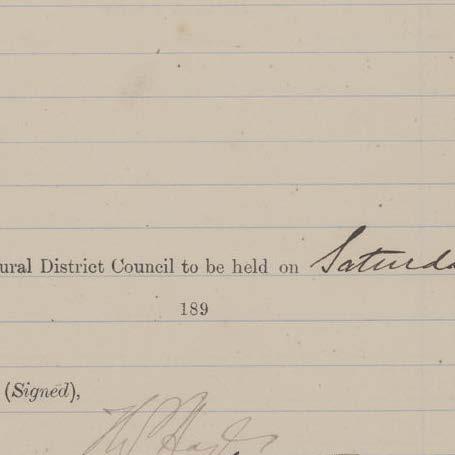 ural District Council to be held on Saturda
189
(Signed),